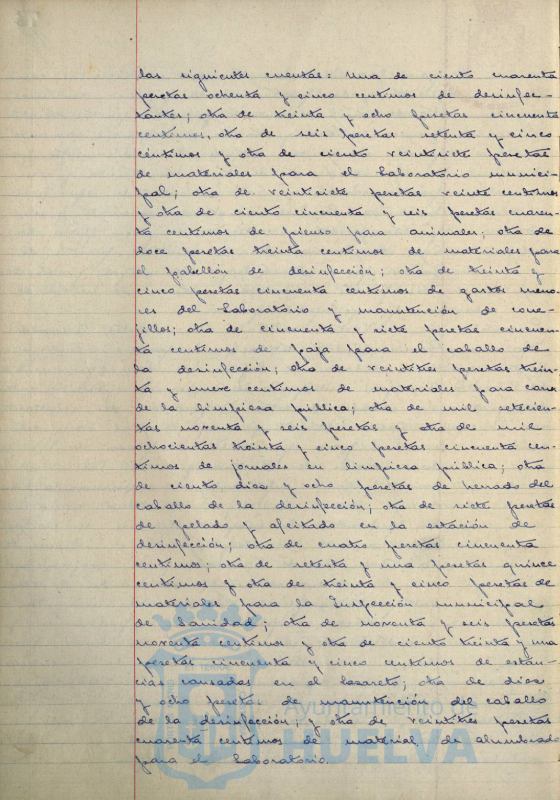 las siguientes cuentas: Una de ciento cuarenta
pesetas ochenta y cinco centimos de desinfec-
tantes; otra de treinta y ocho pesetas cincuenta
centimos, otra de seis pesetas setenta y cinco
centimos y otra de ciento veintisiete pesetas
de materiales para el Laboratorio munici-
pal; otra de veintisiete pesetas veinte centimos
y otra de ciento cincuenta y seis pesetas cuaren-
ta centimos de pienso para animales; otra de
doce pesetas treinta centimos de materiales para
el pabellón de desinfección; otra de treinta y
cinco pesetas cincuenta centimos de gastos meno-
res del Laboratorio y manutención de cone-
jillos; otra de cincuenta y siete pesetas cincuen-
ta centimos de paja para el caballo de
la desinfección; otra de veintitres pesetas trein-
ta y nueve centimos de materiales para
de la limpieza pública; otra de mil setecien-
tas noventa y seis pesetas y otra de mil
ochocientas treinta y cinco pesetas cincuenta cen-
timos de jornales en limpieza pública; otra
de ciento diez y ocho pesetas de herrado del
caballo de la desinfección; otra de siete pesetas
de pelado y afeitado en la estación de
desinfección; otra de cuatro pesetas cincuenta
centimos; otra de setenta y una pesetas quince
centimos y otra de treinta y cinco pesetas de
materiales para la Inspección municipal
de Sanidad; otra de noventa y seis pesetas
noventa centimos y otra de ciento treinta y una
pesetas cincuenta y cinco centimos de estan-
cias causadas en el Lazareto; otra de diez
y ocho pesetas de manutención del caballo
de la desinfección; y otra de veintitres pesetas
cuarenta centimos de material de alumbrado
para el Laboratorio.
Ayuntamiento de
HUELVA